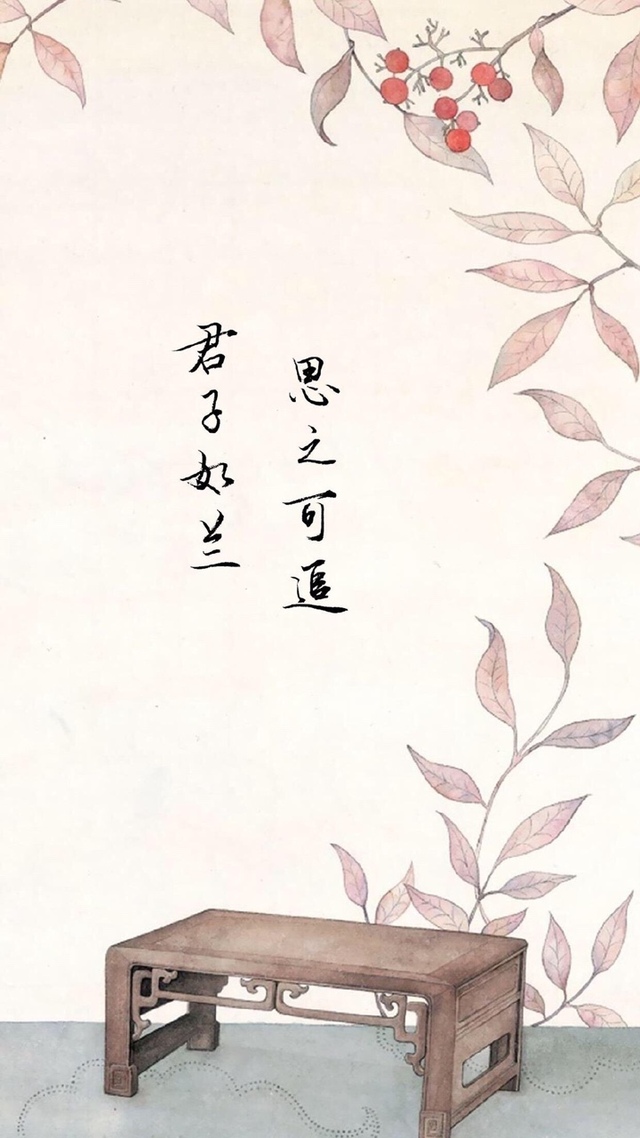 君子如兰
思之可追